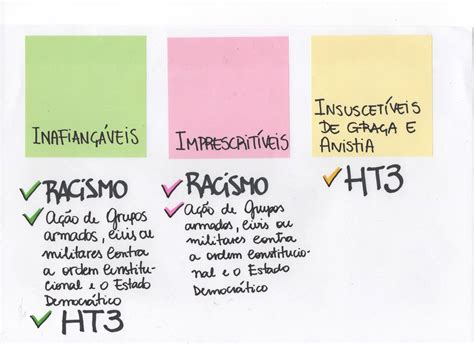 INAFIANÇÁVEIS
✓ RACISMO
✓ AÇÃO de Grupos
armados, civis ou
militares contra
a ordem constitu-
cional e o Estado
Democrático
✓ HT3
IMPRESCRITÍVEIS
✓ RACISMO
✓ AÇÃO de Grupos
armados, civis ou
militares contra
a ordem constitucio-
nal e o Estado
Democrático
INSUSCETÍVEIS
DE GRAÇA E
ANISTIA
✓ HT3